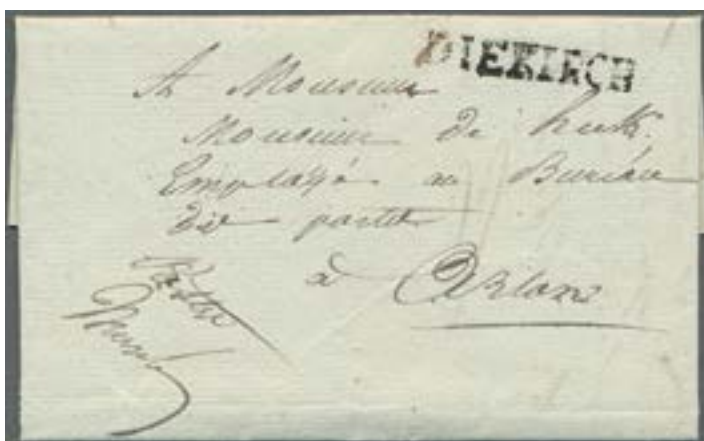 DIEKIRCH
A Monsieur
Monsieur de
Employé au Buréau
des postes
à Arlon